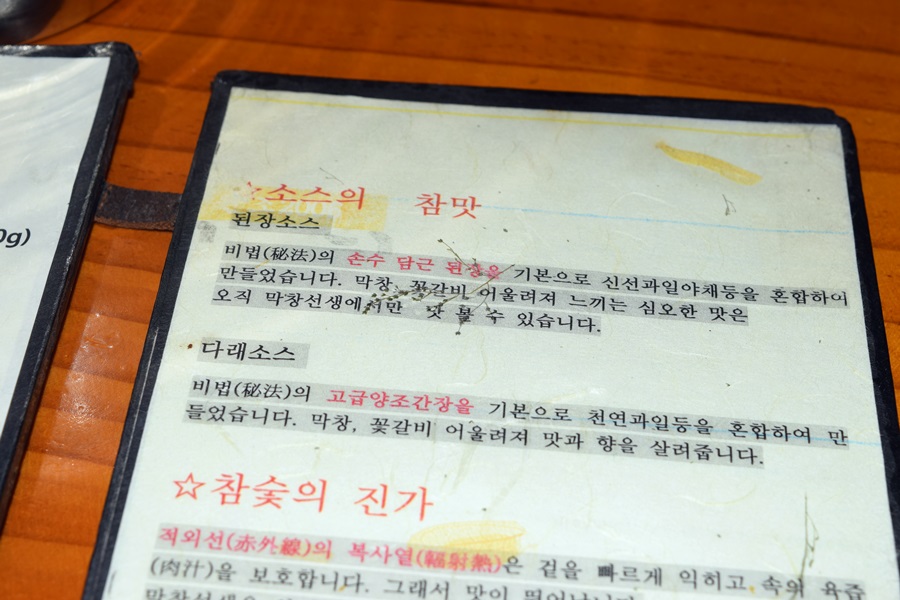 0g)
☆소스의 참맛
된장소스
비법(秘法)의 손수 담근 된장을 기본으로 신선과일야채등을 혼합하여
만들었습니다. 막창, 꽃갈비 어울려져 느끼는 심오한 맛은
오직 막창선생에서만 맛 볼 수 있습니다.
다래소스
비법(秘法)의 고급양조간장을 기본으로 천연과일등을 혼합하여 만
들었습니다. 막창, 꽃갈비 어울려져 맛과 향을 살려줍니다.
☆참숯의 진가
적외선(赤外線)의 복사열(輻射熱)은 겉을 빠르게 익히고 속의 육즙
(肉汁)을 보호합니다. 그래서 맛이